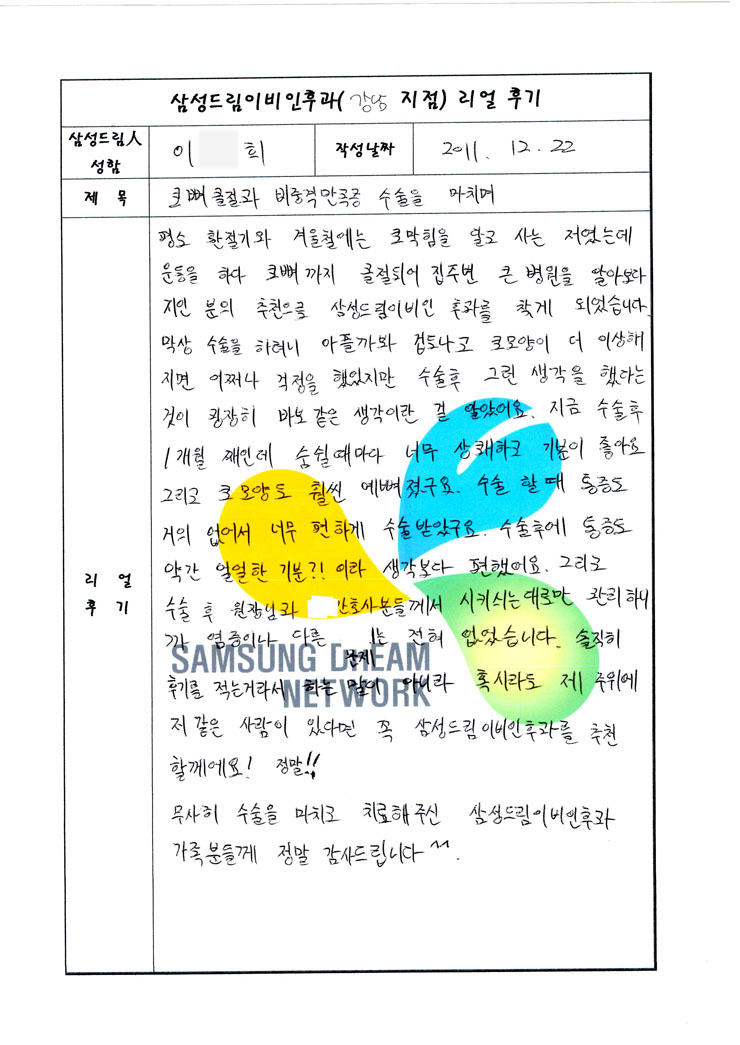 삼성드림이비인후과(강남 지점) 리얼 후기
삼성드림人 성함 이 희 작성날짜 2011. 12. 22
제 목 코뼈골절과 비중격만곡증 수술을 마치며
리 얼 후 기
평소 환절기와 겨울철에는 코막힘을 달고 사는 저였는데
운동을 하다 코뼈까지 골절되어 집주변 큰 병원을 알아보다
지인 분의 추천으로 삼성드림이비인 후과를 찾게 되었습니다.
막상 수술을 하려니 아플까봐 겁도나고 코모양이 더 이상해
지면 어쩌나 걱정을 했었지만 수술후 그런 생각을 했다는
것이 굉장히 바보같은 생각이란 걸 알았어요. 지금 수술후
1개월 째인데 숨쉴때마다 너무 상쾌하고 기분이 좋아요
그리고 코모양도 훨씬 예뻐졌구요. 수술 할때 통증도
거의 없어서 너무 편하게 수술받았구요. 수술후에 통증도
약간 얼얼한 기분?! 이라 생각보다 편했어요. 그리고
수술 후 원장님과 간호사분들께서 시키시는대로만 관리하니
까 염증이나 다른 문제는 전혀 없었습니다. 솔직히
후기를 적는거라서 하는 말이 아니라 혹시라도 제 주위에
저 같은 사람이 있다면 꼭 삼성드림이비인후과를 추천
할께에요! 정말!!
무사히 수술을 마치고 치료해주신 삼성드림이비인후과
가족분들께 정말 감사드립니다^^.
SAMSUNG DREAM
NETWORK